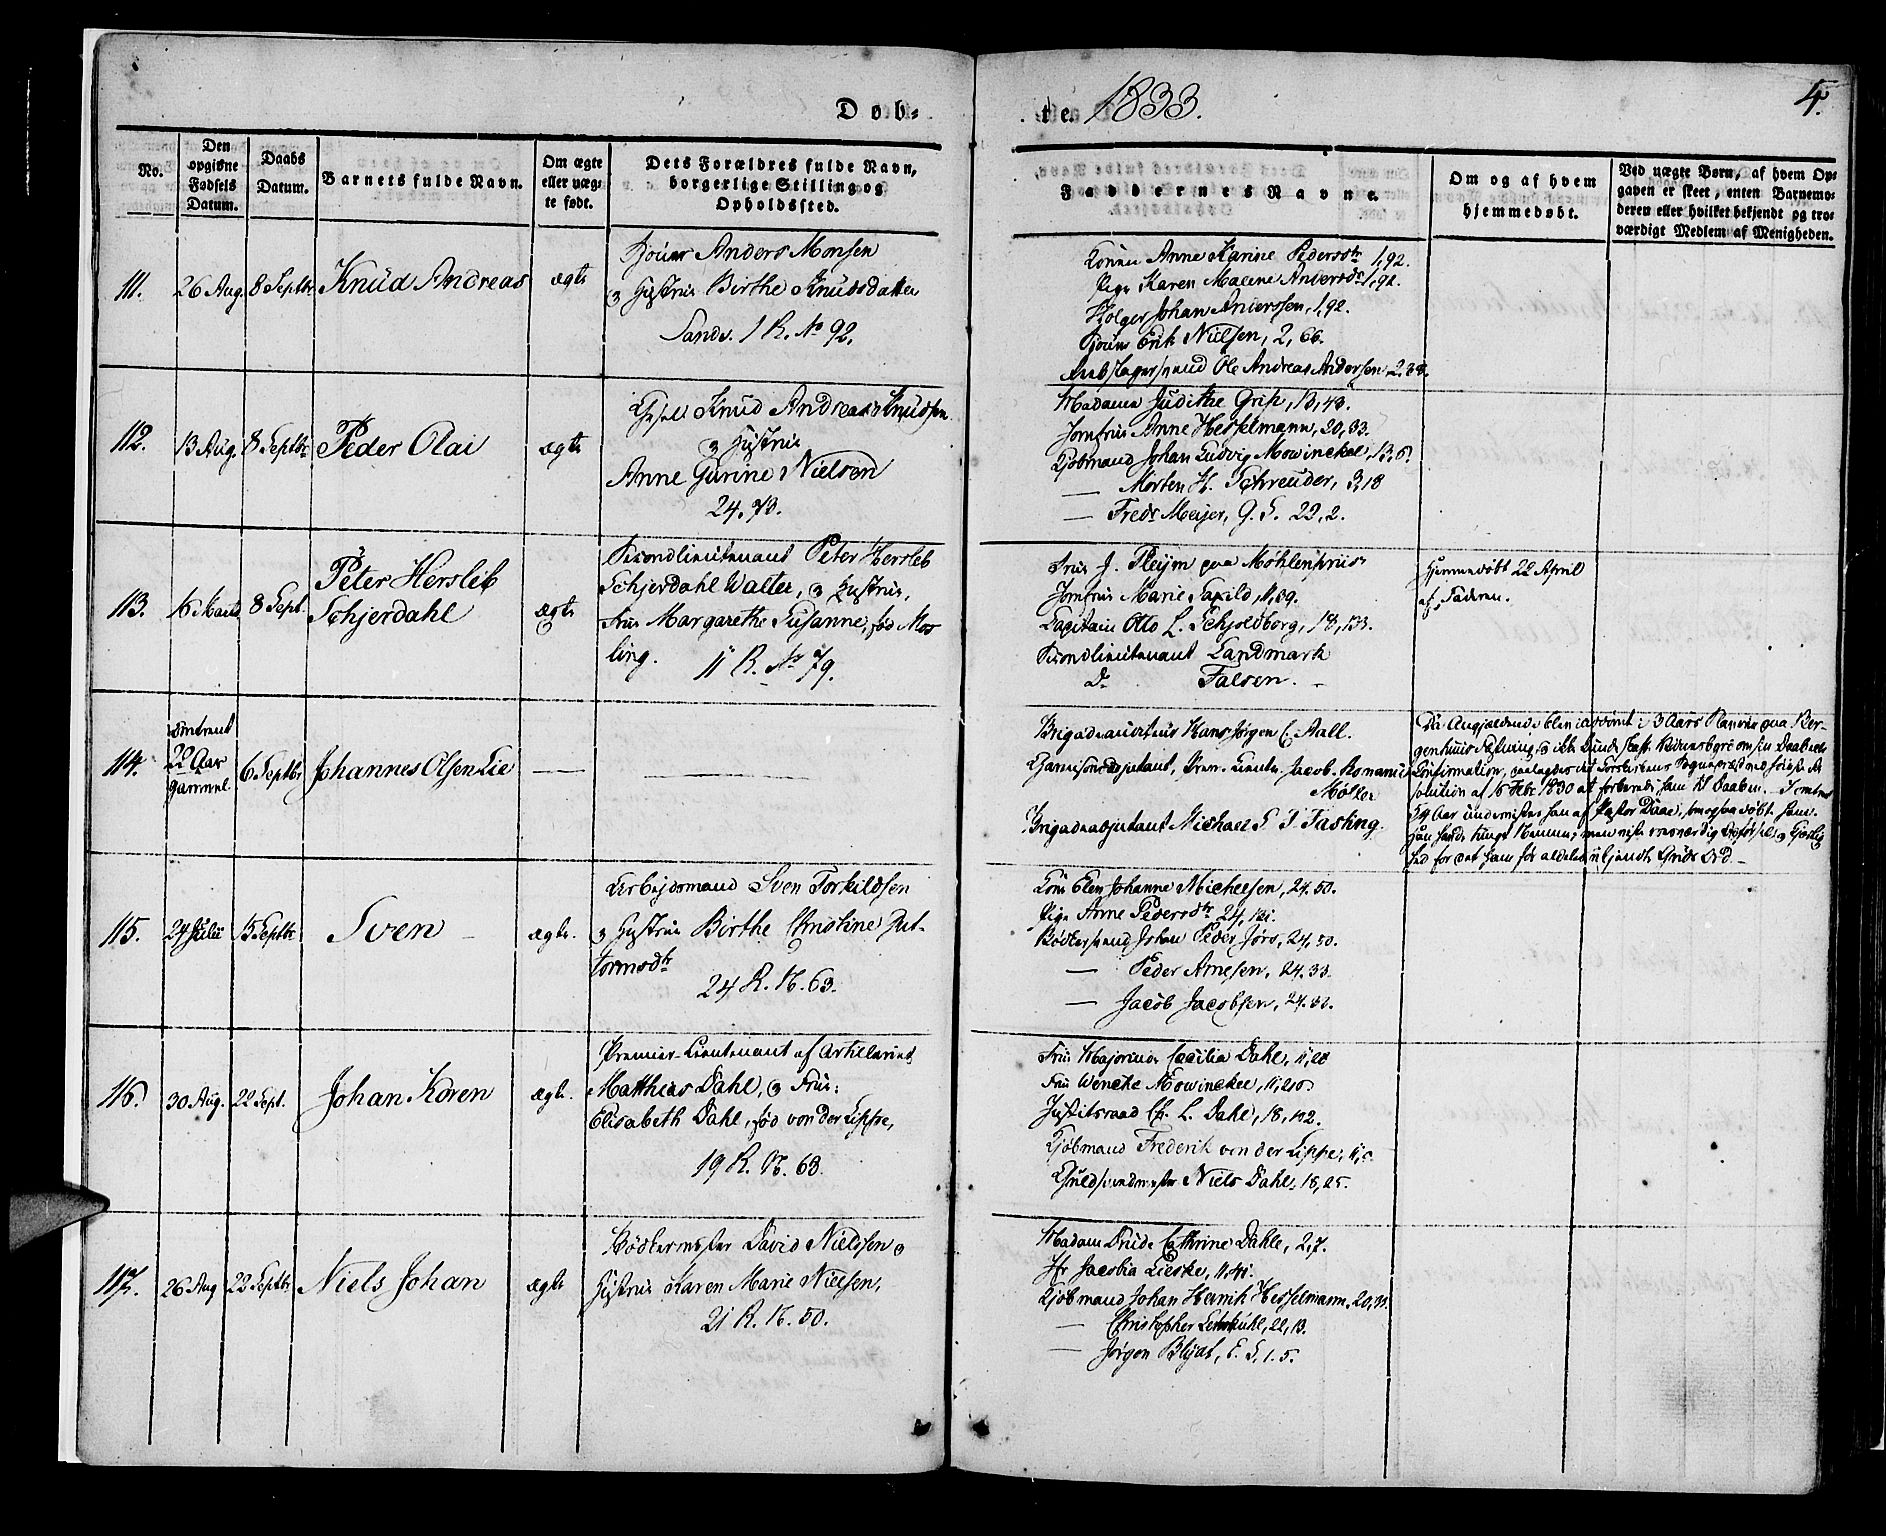 Døb-
te 1833.
4.
No.
Den
opgivne
Fødsels
Datum.
Daabs
Datum.
Barnets fulde Navn.
Om ægte
eller uæg-
te født.
Dets Forældres fulde Navn,
borgerlige Stilling og
Opholdssted.
Faddernes Navne.
Om og af hvem
hjemmedøbt.
Ved uægte Børn, af hvem Op-
gaven er skeet, enten Barnemo-
deren eller hvilket bekjendt og tro-
værdigt Medlem af Menigheden.
111.
26 Aug.
8 Septbr
Knud Andreas
ægte
Anders Monsen
& Hustrue Birthe Knudsdatter
Sands. 1 R. No 92.
Konen Anne Karine Pedersdr 1,92.
Pige Karen Malene Andersdr 1,92.
Johan Anderssen, 1,92.
Erik Nielsen, 2, 66.
Ole Andreas Andersen
112.
13 Aug.
8 Septbr
Peder Olai
ægte
Knud Andreas Knudsen
& Hustrue
Anne Gurine Nielsen
24. 73.
Madame Judithe Grip, 13, 43.
Jomfrue Anne Hesselmann, 20,33.
Kjøbmand Johan Ludvig Mowinckel, 13,6.
— Morten H. Schreuder, 3,18
— Fredr Meijer, 9. S. 22, 2.
113.
8 Sept.
Peter Hersleb
Schjerdahl
ægte
Secondlieutenant Peter Hersleb
Schjerdahl Walter, & Hustrue,
Frue Margarethe Susanne, fød Mos
ling.
11 R. No 79.
Frue J. Pleym paa Møhlenpriis
Jomfrue Marie
Capitain Otto L. Schjoldborg, 18, 133.
Secondlieutenant Landmark
Do Falsen. -
Hjemmedøbt 22 April
af Faderen.
114.
omtrent
22 Aar
gammel
6 Septbr
Johannes Olsen Lie
—
Brigadeauditeur Hans Jørgen C. Aall.
Garnisonsadjutant, Prem. Lieutn. Jacob Romanus
Møller
Brigadeadjutant Michael S. T. Fasting.
Da Angjældende blev idømt 3 Aars Slaverie paa Ber-
genhuus Fæstning, & ikke kunde skaffe Beviisbyrd om sin Daab eller
Confirmation, paalagdes det
solution af 16 Febr 1830 at forberede ham til Daaben.
af Pastor Daae, som ogsaa døbt ham.
115.
24 Julii
15 Septbr
Sven -
ægte.
Arbejdsmand Sven Torkildsen
& Hustrue Birthe Christine Gut-
tormsdtr
24 R. N. 63.
Kone Elen Johanne Michelsen, 24. 50.
Pige Anne Pedersdtr 24, 121.
Bødkersvend Johan Peder Jørs, 24, 50.
— Peder Arnesen, 24. 33.
— Jacob Jacobsen, 24. 32.
116.
30 Aug.
22 Sept.
Johan Koren
ægte.
Premier-Lieutenant af Artilleriet,
Matthias Dahl, & Frue:
Elisabeth Dahl, fød von der Lippe,
19 R. N. 68.
Frue Majorinde Cecilia Dahl, 11,28
Frue Wencke Mowinckel,
Justitsraad Ch. L. Dahl, 18, 102.
Kjøbmand Frederik von der Lippe,
Guldsmedmester Niels Dahl, 18, 25.
117.
26 Aug
22 Septbr
Niels Johan
ægte
Bødkermester David Nielssen &
Hustrue Karen Marie Nielsen,
21 R. N. 50.
Madam Drude Cathrine Dahle, 2,7.
Jfr Jacobia Lieske, 11.41.
Kjøbmand Johan Henrik Hesselmann, 20,33.
— Christopher Lehmkuhl, 22, 13.
— Jørgen Blijdt, C. S. 1. 5.